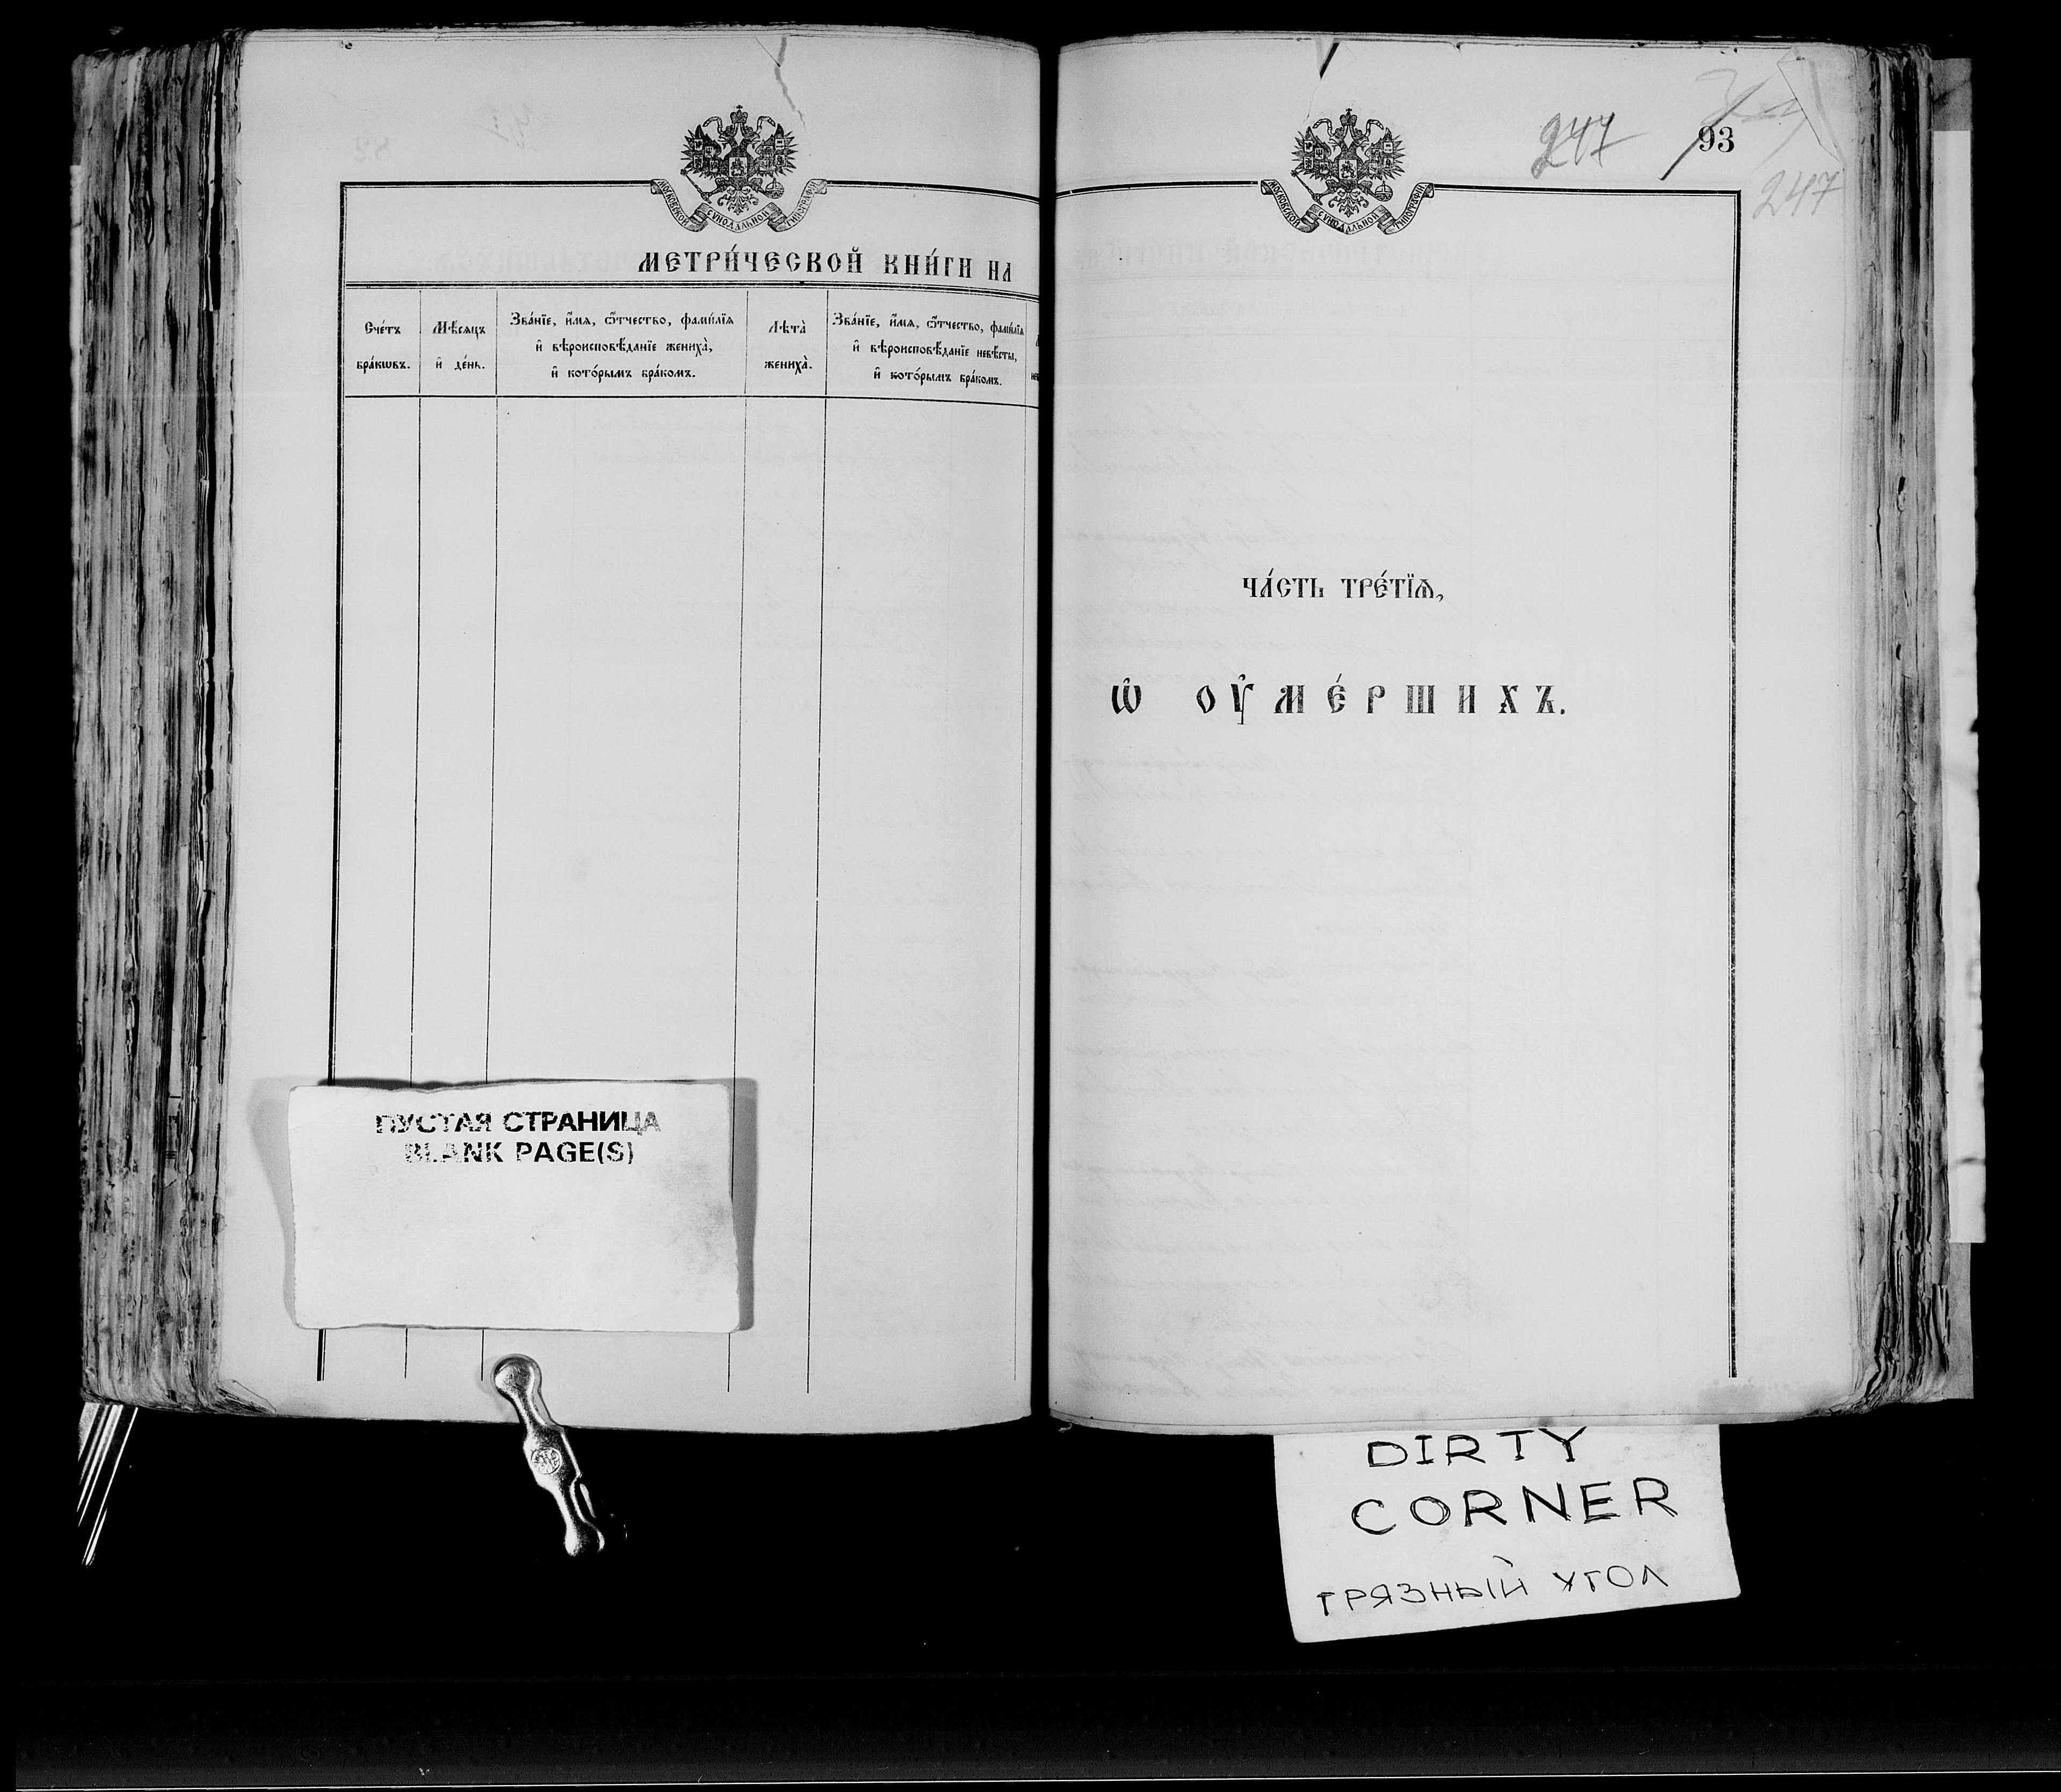 МОСКОВСКОЙ СѴНОДАЛЬНОЙ ТИПОГРАФІИ
МЕТРИ́ЧЕСКОЙ КНИ́ГИ НА
Сче́тъ бра́кѡвъ.
Мѣ́сяцъ и҆ де́нь.
Зва́нїе, и҆́мѧ, ѻ҆́тчество, фами́лїѧ
и҆ вѣроисповѣ́данїе женихà,
и҆ кото́рымъ бра́комъ.
Лѣтà женихà.
Зва́нїе, и҆́мѧ, ѻ҆́тчество, фами́лїѧ
и҆ вѣроисповѣ́данїе невѣ́сты,
и҆ кото́рымъ бра́комъ.
ПУСТАЯ СТРАНИЦА
BLANK PAGE(S)
247
93
247
МОСКОВСКОЙ СѴНОДАЛЬНОЙ ТИПОГРАФІИ
ЧА́СТЬ ТРЕ́ТЇѦ,
Ѡ҆ ОУ҆МЕ́РШИХЪ.
DIRTY
CORNER
ГРЯЗНЫЙ УГОЛ